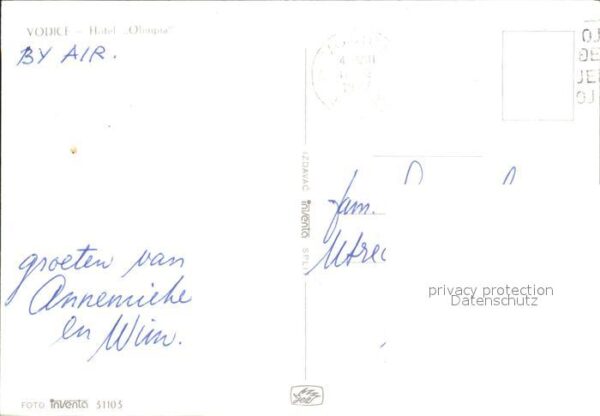 VODICE - Hotel „Olimpia"
BY AIR.
groeten van
Annemieke
en Wim.
FOTO inventa 51103
IZDAVAČ inventa SPLIT
fam.
Utrec
privacy protection
Datenschutz